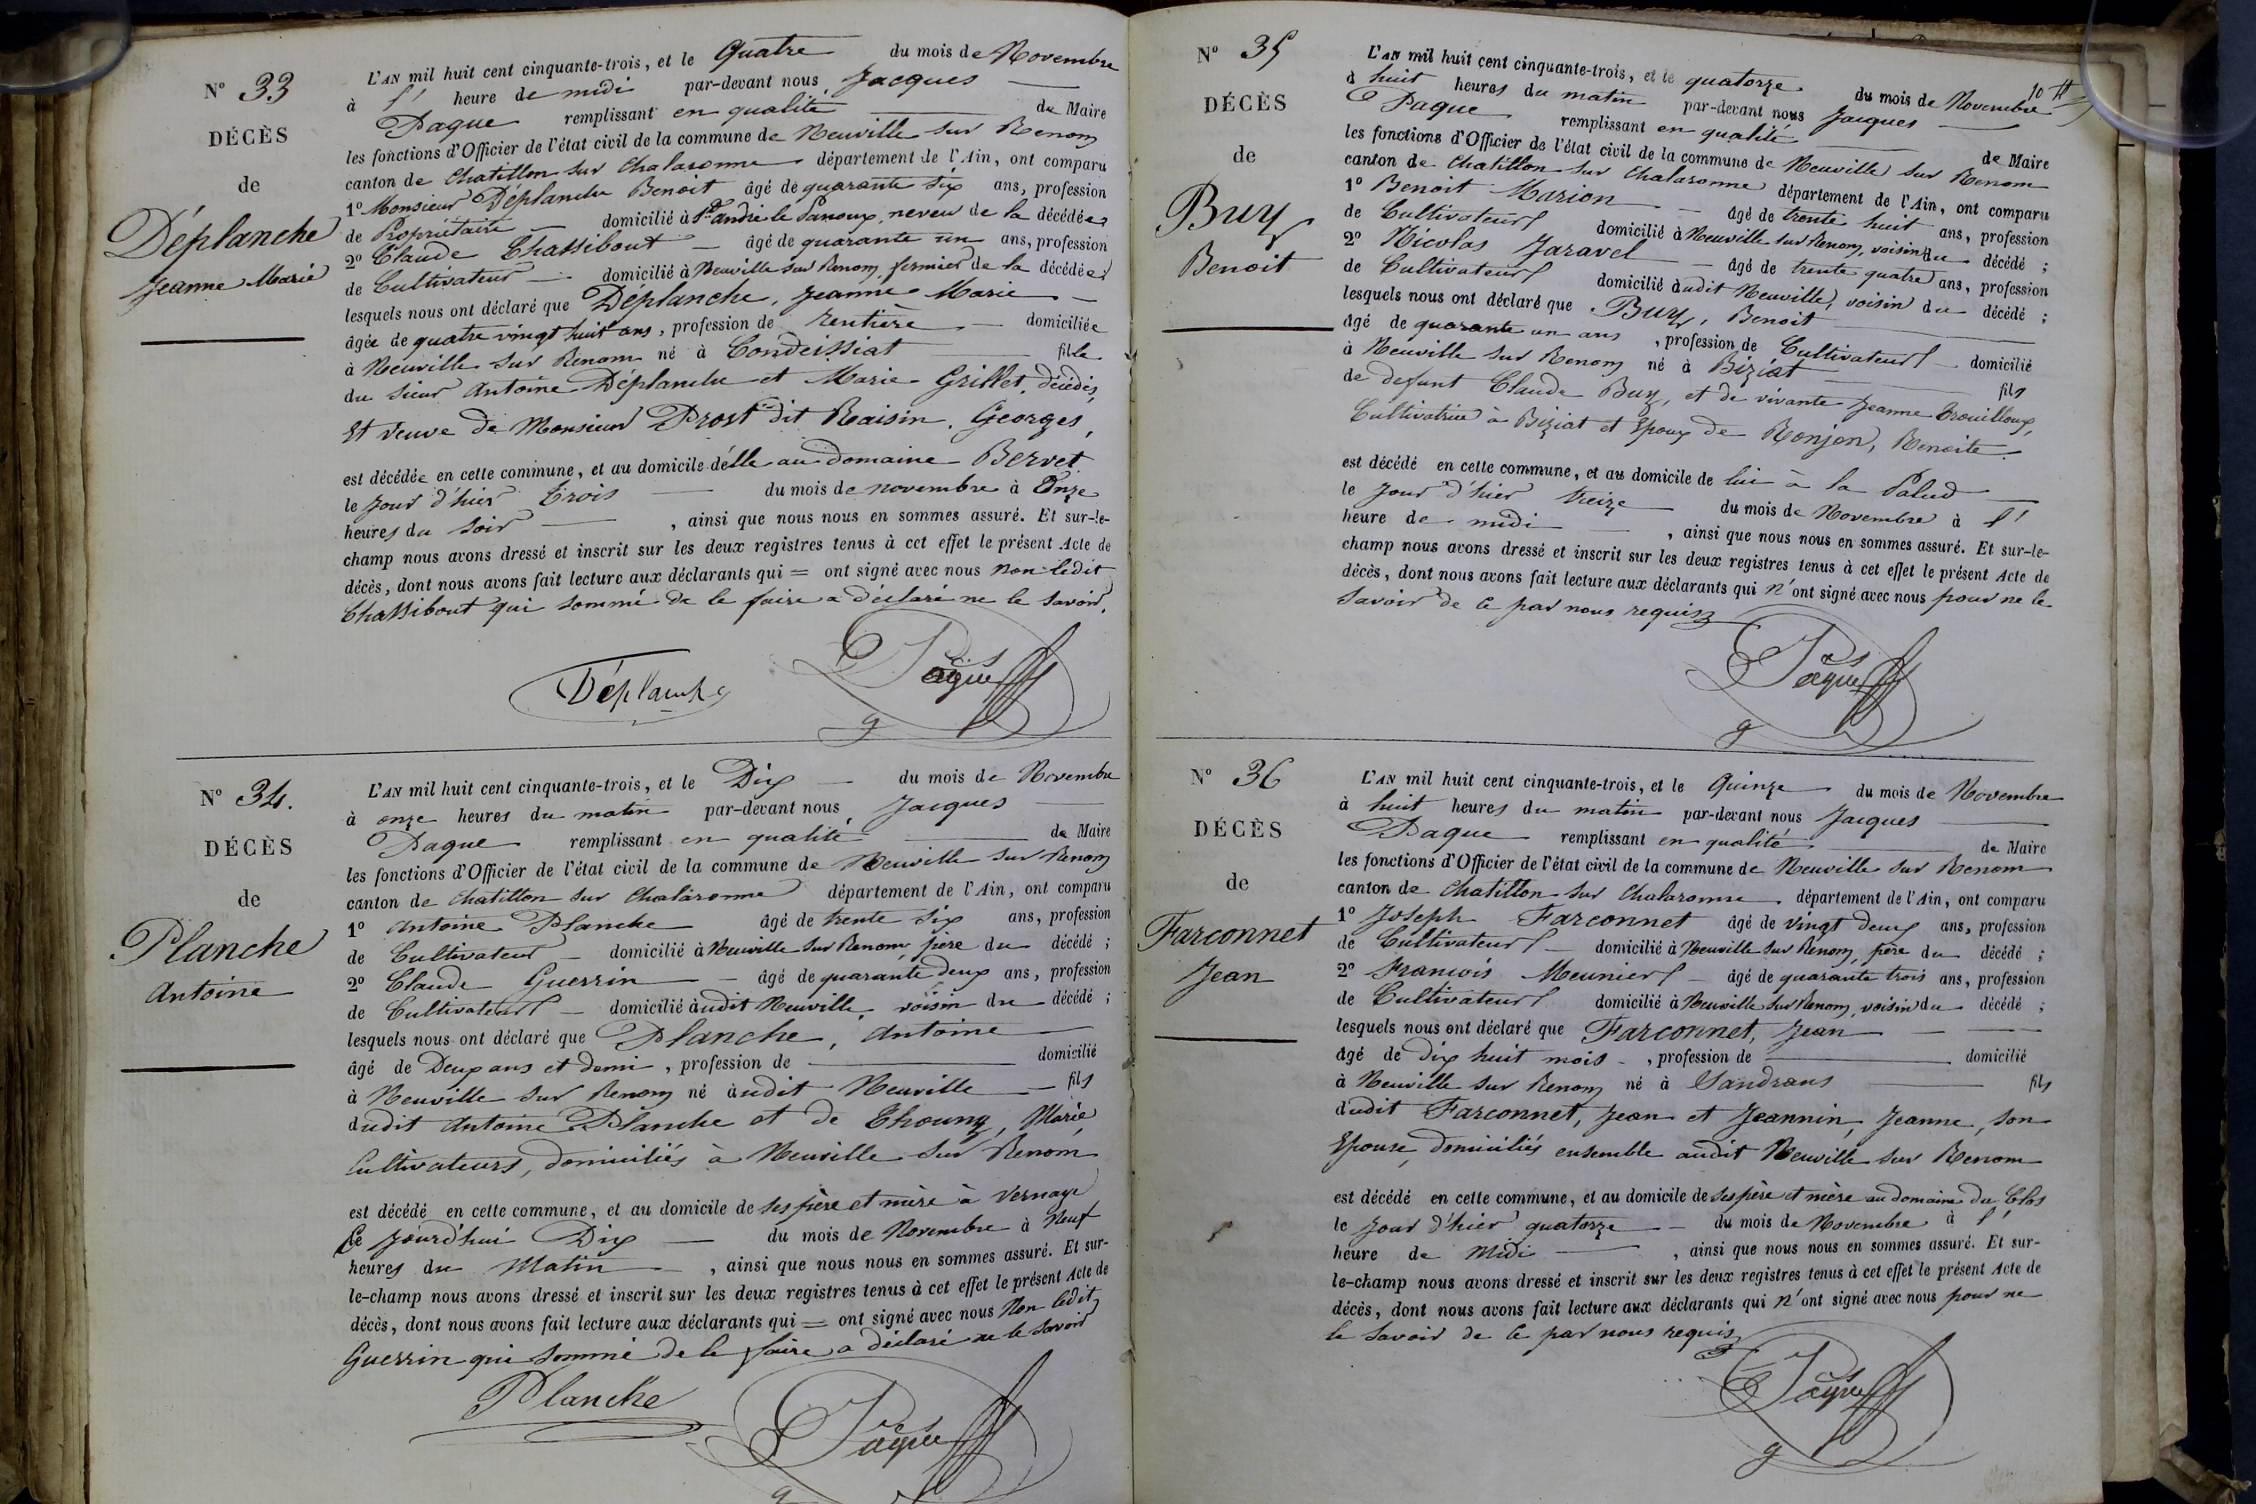 N° 33
DÉCÈS
de
Déplanche
Jeanne Marie
L'AN mil huit cent cinquante-trois, et le Quatre du mois de Novembre
à l' heure de midi par-devant nous Jacques
Paque remplissant en qualité de Maire
les fonctions d'Officier de l'état civil de la commune de Neuville sur Renom
canton de Chatillon sur Chalaronne département de l'Ain, ont comparu
1° Monsieur Déplanche Benoit âgé de quarante six ans, profession
de Propriétaire domicilié à St andré le Panoux, neveu de la décédée;
2° Claude Chassibout âgé de quarante un ans, profession
de Cultivateur domicilié à Neuville sur Renom, fermier de la décédée;
lesquels nous ont déclaré que Déplanche, Jeanne Marie
âgée de quatre vingt huit ans, profession de rentière domiciliée
à Neuville sur Renom né à Condeissiat fille
du sieur Antoine Déplanche et Marie Grillet, décédés,
Et veuve de Monsieur Prost dit Raisin, Georges,
est décédée en cette commune, et au domicile d'elle au domaine Bervet
le jour d'hier trois du mois de novembre à Onze
heures du soir, ainsi que nous nous en sommes assuré. Et sur-le-
champ nous avons dressé et inscrit sur les deux registres tenus à cet effet le présent Acte de
décès, dont nous avons fait lecture aux déclarants qui = ont signé avec nous Non ledit
Chassibout qui sommé de le faire a déclaré ne le savoir.
Déplanche Paque
N° 34.
DÉCÈS
de
Planche
Antoine
L'AN mil huit cent cinquante-trois, et le Dix du mois de Novembre
à onze heures du matin par-devant nous Jacques
Paque remplissant en qualité de Maire
les fonctions d'Officier de l'état civil de la commune de Neuville sur Renom
canton de Chatillon sur Chalaronne département de l'Ain, ont comparu
1° Antoine Planche âgé de trente six ans, profession
de Cultivateur domicilié à Neuville sur Renom père du décédé;
2° Claude Guerrin âgé de quarante deux ans, profession
de Cultivateur domicilié audit Neuville, voisin du décédé;
lesquels nous ont déclaré que Planche, Antoine
âgé de Deux ans et demi, profession de domicilié
à Neuville sur Renom né audit Neuville fils
dudit Antoine Planche et de Marie,
Cultivateurs, domiciliés à Neuville sur Renom
est décédé en cette commune, et au domicile de ses père et mère à Vernaye
Ce jourd'hui Dix du mois de Novembre à Neuf
heures du Matin, ainsi que nous nous en sommes assuré. Et sur-
le-champ nous avons dressé et inscrit sur les deux registres tenus à cet effet le présent Acte de
décès, dont nous avons fait lecture aux déclarants qui = ont signé avec nous Non ledit
Guerrin qui sommé de le faire a déclaré ne le savoir
Planche Paque
N° 35
DÉCÈS
de
Buy
Benoit
L'AN mil huit cent cinquante-trois, et le quatorze du mois de Novembre
à huit heures du matin par-devant nous Jacques
Paque remplissant en qualité de Maire
les fonctions d'Officier de l'état civil de la commune de Neuville sur Renom
canton de Chatillon sur Chalaronne département de l'Ain, ont comparu
1° Benoit Marion âgé de trente huit ans, profession
de Cultivateur domicilié à Neuville sur Renom, voisin du décédé;
2° Nicolas Jaravel âgé de trente quatre ans, profession
de Cultivateur domicilié audit Neuville, voisin du décédé;
lesquels nous ont déclaré que Buy, Benoit
âgé de quarante un ans, profession de Cultivateur domicilié
à Neuville sur Renom né à Biziat fils
de defunt Claude Buy, et de vivante Jeanne Trouilloux,
Cultivatrice à Biziat et Epoux de Ronjon, Benoite.
est décédé en cette commune, et au domicile de lui à la Palud
le jour d'hier treize du mois de Novembre à l'
heure de midi, ainsi que nous nous en sommes assuré. Et sur-le-
champ nous avons dressé et inscrit sur les deux registres tenus à cet effet le présent Acte de
décès, dont nous avons fait lecture aux déclarants qui n'ont signé avec nous pour ne le
savoir de ce par nous requis
Paque
N° 36
DÉCÈS
de
Farconnet
Jean
L'AN mil huit cent cinquante-trois, et le Quinze du mois de Novembre
à huit heures du matin par-devant nous Jacques
Paque remplissant en qualité de Maire
les fonctions d'Officier de l'état civil de la commune de Neuville sur Renom
canton de Chatillon sur Chalaronne département de l'Ain, ont comparu
1° Joseph Farconnet âgé de vingt deux ans, profession
de Cultivateur domicilié à Neuville sur Renom, père du décédé;
2° François Meunier âgé de quarante trois ans, profession
de Cultivateur domicilié à Neuville sur Renom, voisin du décédé;
lesquels nous ont déclaré que Farconnet, Jean
âgé de dix huit mois, profession de domicilié
à Neuville sur Renom né à Sandrans fils
dudit Farconnet, Jean et Jeannin, Jeanne, son
Epouse, domiciliés ensemble audit Neuville sur Renom
est décédé en cette commune, et au domicile de ses père et mère au domaine du Clos
le jour d'hier quatorze du mois de Novembre à l'
heure de Midi, ainsi que nous nous en sommes assuré. Et sur-
le-champ nous avons dressé et inscrit sur les deux registres tenus à cet effet le présent Acte de
décès, dont nous avons fait lecture aux déclarants qui n'ont signé avec nous pour ne
le savoir de ce par nous requis
Paque